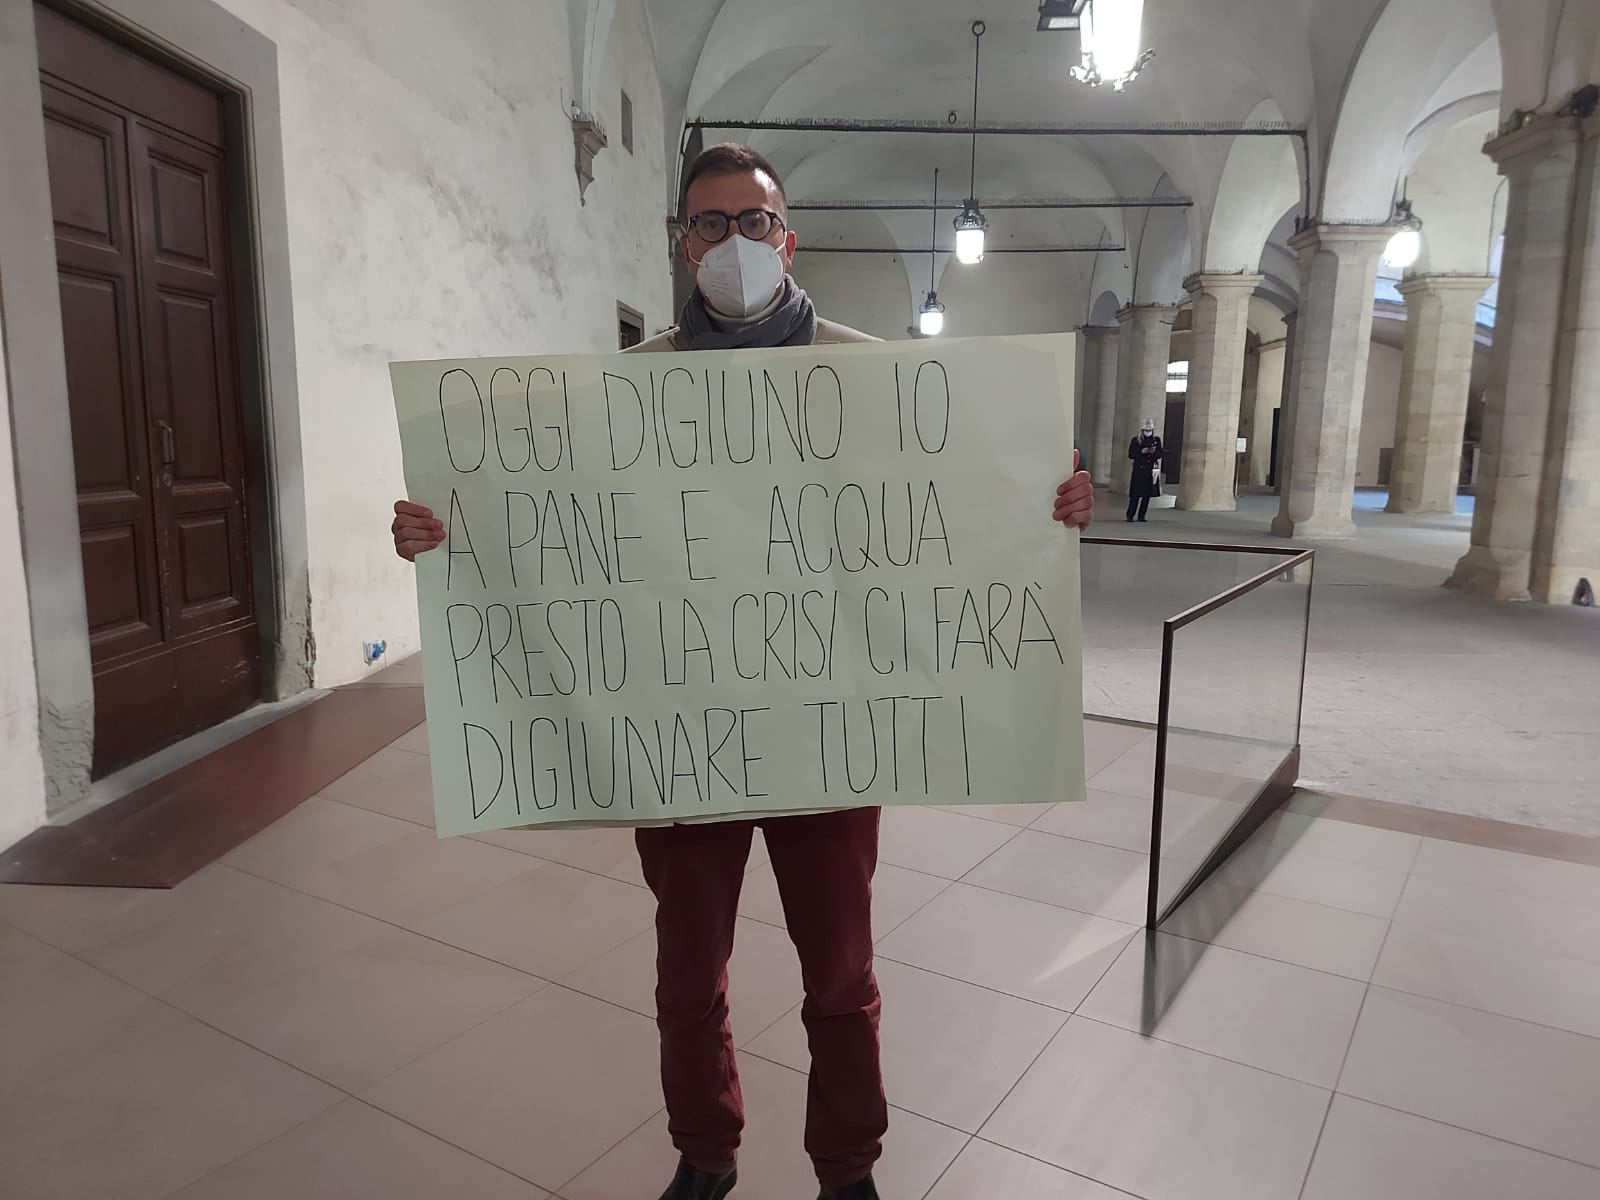 OGGI DIGIUNO IO
A PANE E ACQUA
PRESTO LA CRISI CI FARÀ
DIGIUNARE TUTTI